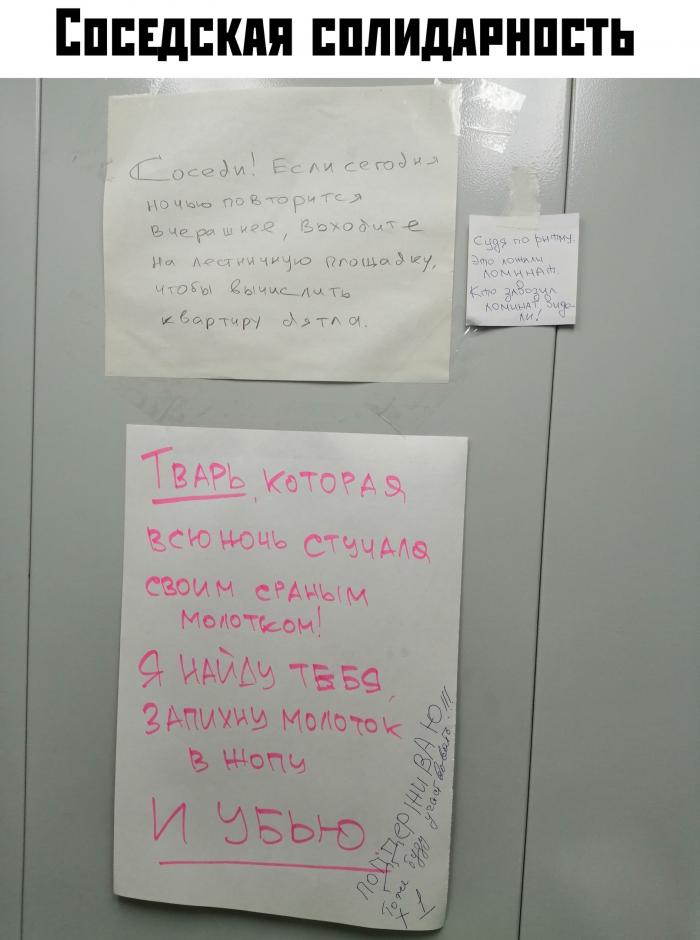 Соседская солидарность
Соседи! Если сегодня
ночью повторится
вчерашнее, выходите
на лестничную площадку,
чтобы вычислить
квартиру дятла.
Судя по ритму.
Это ложили
ломинат.
Кто завозил
ломинат, вида-
ли!
Тварь, которая
всю ночь стучала
своим сраным
молотком!
Я найду тебя,
запихну молоток
в жопу
и убью
поддерживаю
Тоже буду участвовать!!!